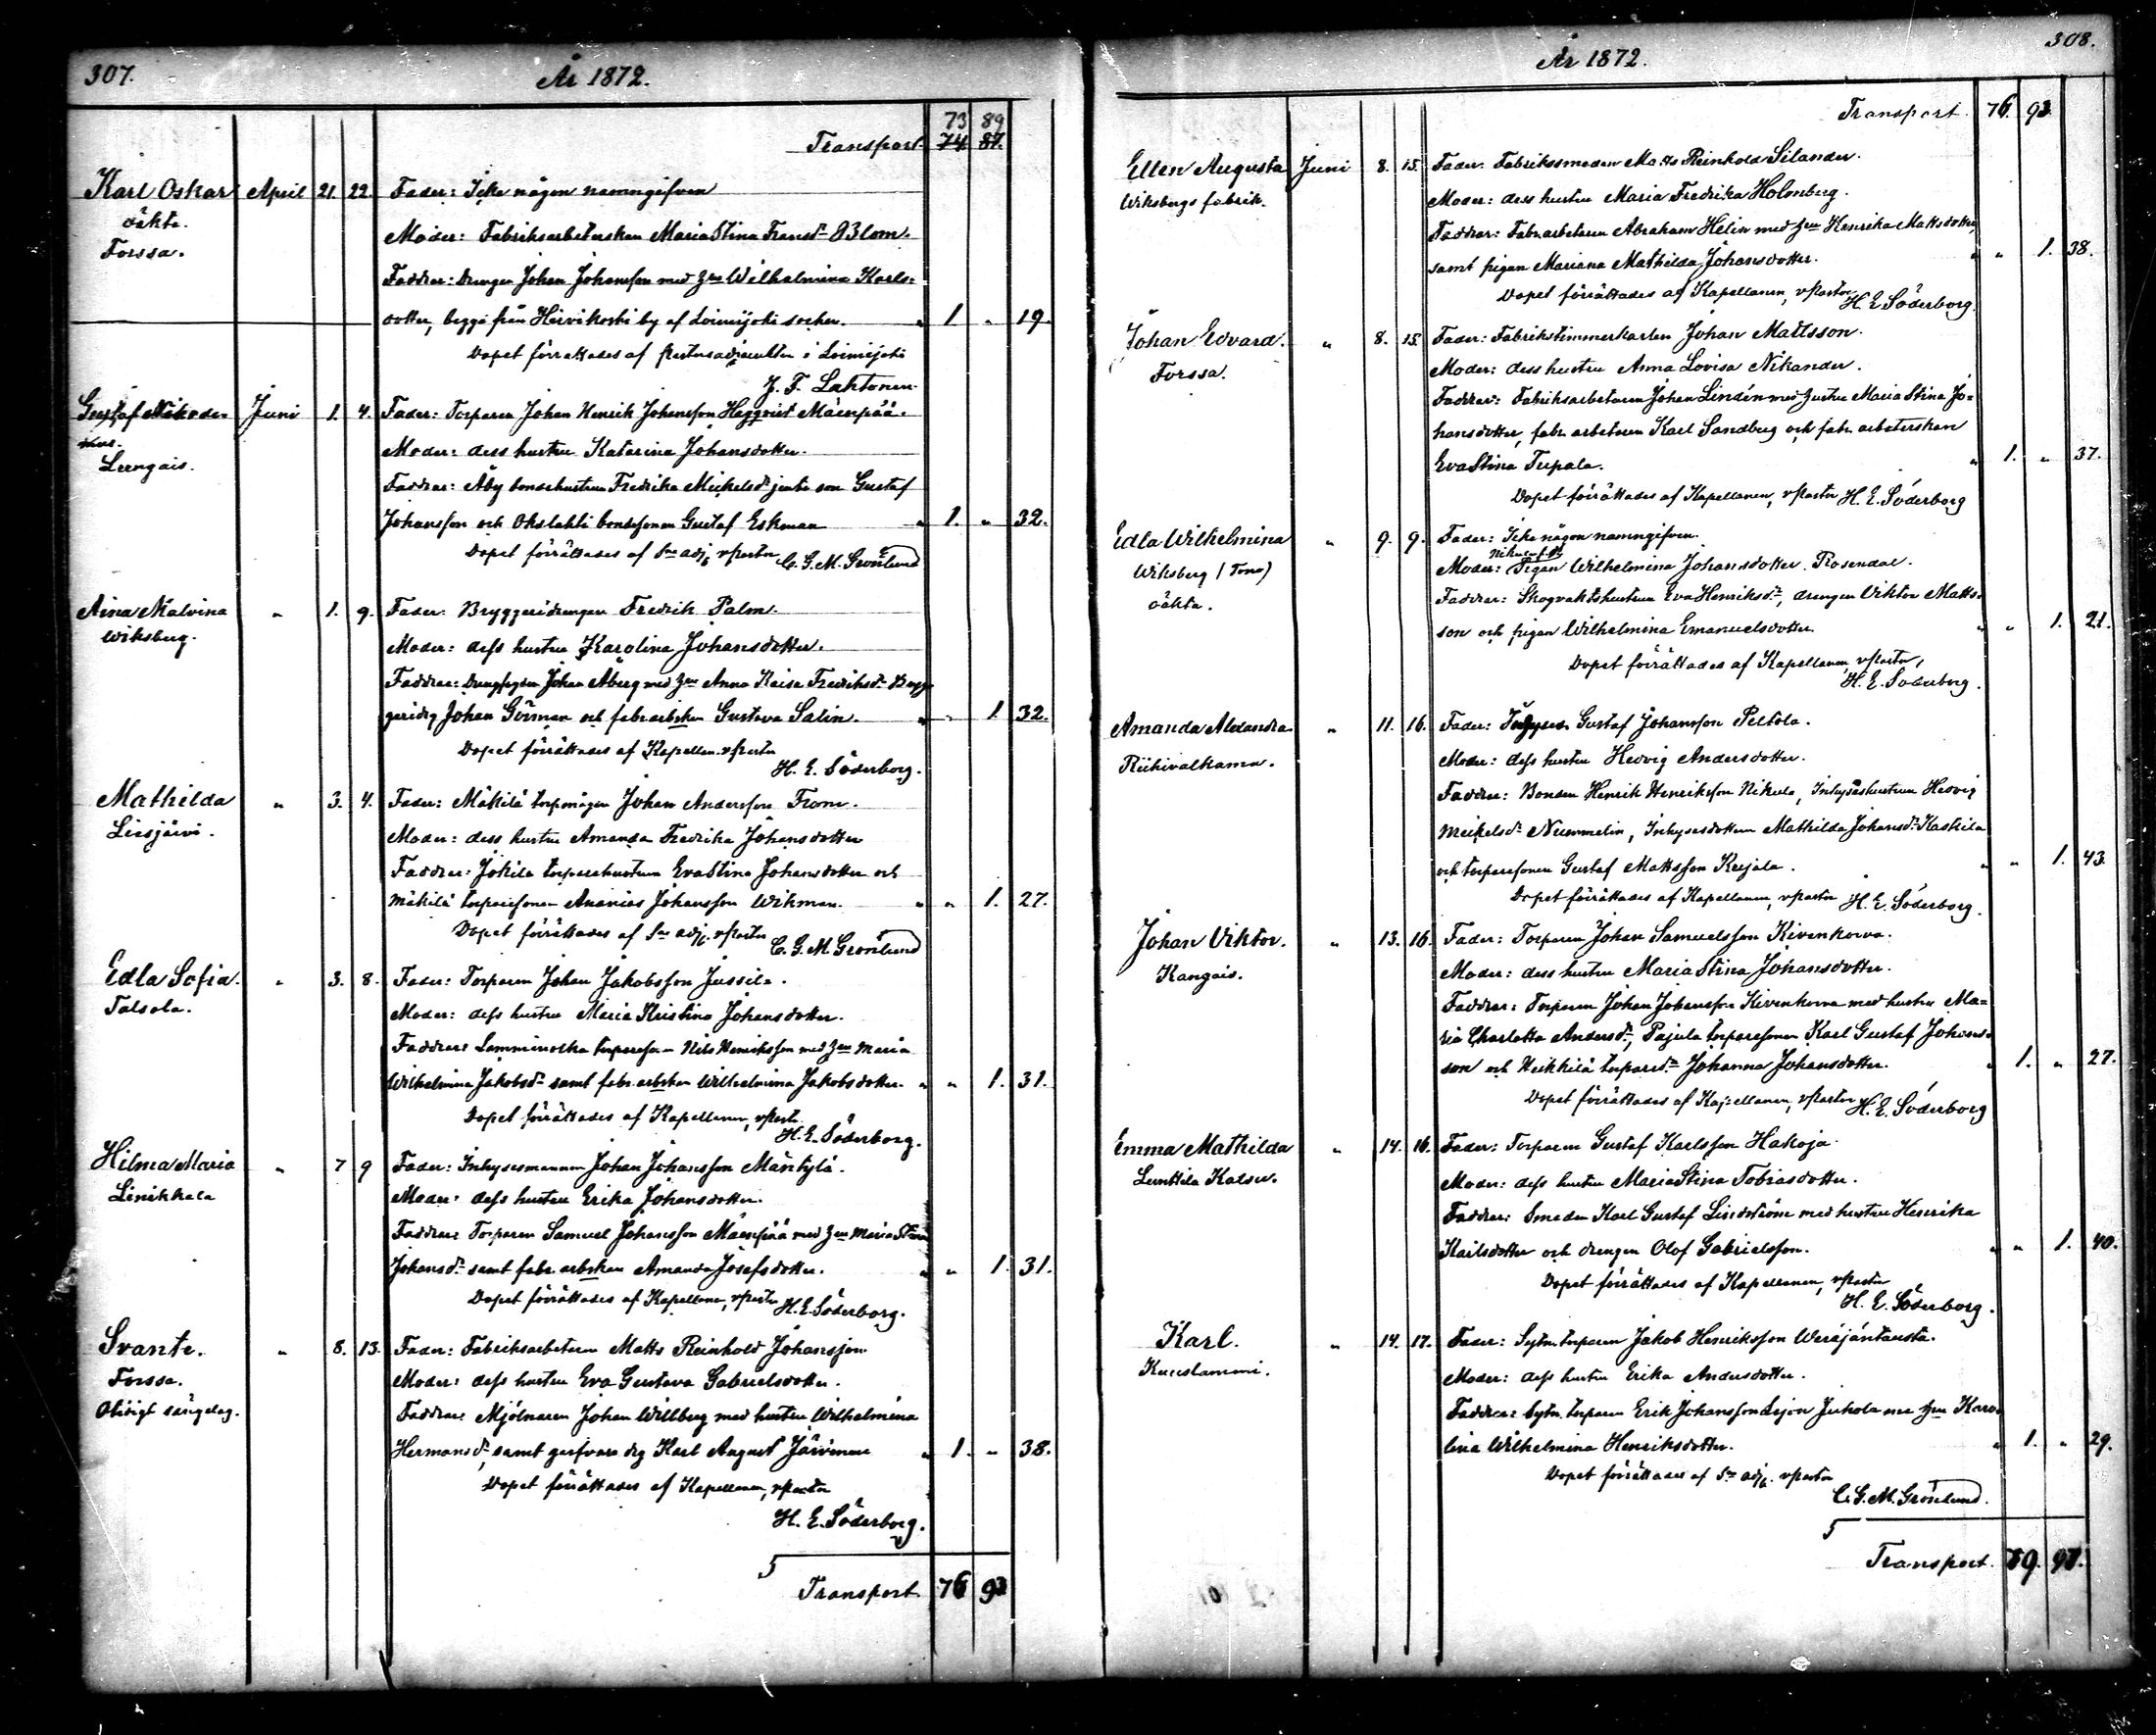 307.
År 1872.
73 89
Transport 74. 87.
Karl Oskar April 21. 22. Fader: Icke någon namngifven
oäkta.
Moder: Fabriksarbeterskan Maria Stina Fransdr Blom.
Forssa.
Faddrar: Drengen Johan Johansson med hru Wilhelmina Karls-
dotter, begge från Hirvikoski by af Loimijoki socken. " 1 " 19
Dopet förrättades af pastorsadjunkten i Loimijoki
J. F. Lahtonen.
Juni 1. 4. Fader: Torparen Johan Henrik Johansson Haggqvist Mäenpää.
Moder: dess hustru Katarina Johansdotter.
Faddrar: Åby bondehustrun Fredrika Mickelsdr jemte son Gustaf
Johansson och Okslahti bondesonen Gustaf Eskman " 1. " 32.
Dopet förrättades af Sne adj. vPastor C. G. M. Grönlund
Aina Malvina " 1. 9. Fader: Bryggeridrengen Fredrik Palm.
Wiksberg.
Moder: dess hustru Karolina Johansdotter.
Faddrar: Johan Åberg med hru Anna Kaisa Fredriksdr Brygg-
geridrg Johan Görman och fabr.arbskan Gustava Salin. " " 1 32.
Dopet förrättades af Kapellan. vPastor
H. E. Söderborg.
Mathilda " 3. 4. Fader: Mäkilä torpmågen Johan Andersson From.
Liesjärvi.
Moder: dess hustru Amanda Fredrika Johansdotter
Faddrar: Jokila torparehustrun Eva Stina Johansdotter och
Mäkilä torparesonen Ananias Johansson Wikman. " " 1. 27.
Dopet förrättades af Sne adj. vPastor
C. G. M. Grönlund
Edla Sofia. " 3. 8. Fader: Torparen Johan Jakobsson Jussila.
Talsola.
Moder: dess hustru Maria Kristina Johansdotter.
Faddrar: Lamminoika torparesonen Nils Henriksson med hru Maria
Wilhelmina Jakobsdr samt fabr.arbskan Wilhelmina Jakobsdotter. " " 1. 31.
Dopet förrättades af Kapellanen, vPastor
H. E. Söderborg.
Hilma Maria " 7 9 Fader: Inhysesmannen Johan Johansson Mäntylä.
Linikkala
Moder: dess hustru Erika Johansdotter.
Faddrar: Torparen Samuel Johansson Mäenpää med hru Maria Stina
Johansdr samt fabr.arbskan Amanda Josefsdotter. " " 1. 31.
Dopet förrättades af Kapellanen, vPastor H. E. Söderborg.
Svante. " 8. 13. Fader: Fabriksarbetaren Matts Reinhold Johansson
Forssa.
Moder: dess hustru Eva Gustava Gabrielsdotter.
Faddrar: Mjölnaren Johan Willberg med hustru Wilhelmina
Hermansdr, samt garfvare drg Karl August Järvinen " 1. " 38.
Dopet förrättades af Kapellanen, vPastor
H. E. Söderborg.
5
Transport 76 93
308.
År 1872.
Transport. 76. 93.
Ellen Augusta Juni 8. 15. Fader: Fabrikssmeden Matts Reinhold Silander.
Wiksbergs fabrik.
Moder: dess hustru Maria Fredrika Holmberg.
Faddrar: Fabr.arbetaren Abraham Helin med hru Henrika Mattsdotter,
samt pigan Mariana Mathilda Johansdotter. " " 1. 38.
Dopet förrättades af Kapellanen, vPastor H. E. Söderborg.
Johan Edvard. " 8. 15. Fader: Fabrikstimmerkarlen Johan Mattsson.
Forssa.
Moder: dess hustru Anna Lovisa Nikander.
Faddrar: Fabriksarbetaren Johan Lindén med hustru Maria Stina Jo-
hansdotter, fabr. arbetaren Karl Sandberg och fabr. arbeterskan
Eva Stina Tupala. " 1. " 37.
Dopet förrättades af Kapellanen, vPastor H. E. Söderborg
Edla Wilhelmina " 9. 9. Fader: Icke någon namngifven.
Wiksberg (Torro)
Moder: Pigan Wilhelmina Johansdotter Rosendal.
oäkta.
Faddrar: Skogvaktshustrun Eva Henriksdr, drengen Viktor Matts-
son och pigan Wilhelmina Emanuelsdotter. " " 1. 21.
Dopet förrättades af Kapellanen, vPastor,
H. E. Söderborg.
Amanda Alexandra " 11. 16. Fader: Gustaf Johansson Peltola.
Riihivalkama.
Moder: dess hustru Hedvig Andersdotter.
Faddrar: Bonden Henrik Henriksson Nikula, Inhyseshustrun Hedvig
Meikelsdr Nummelin, Inhysesdottern Mathilda Johansdr Kaskila
och torparesonen Gustaf Mattsson Kujala. " " 1. 43.
Dopet förrättades af Kapellanen, vPastor H. E. Söderborg.
Johan Viktor. " 13. 16. Fader: Torparen Johan Samuelsson Kivenkorva.
Kangais.
Moder: dess hustru Maria Stina Johansdotter.
Faddrar: Torparen Johan Johansson Kivenkorva med hustru Ma-
ria Charlotta Andersdr, Pajula torparesonen Karl Gustaf Johans-
son och Heikkilä torparedr Johanna Johansdotter. " 1. " 27.
Dopet förrättades af Kapellanen, vPastor H. E. Söderborg
Emma Mathilda " 14. 16. Fader: Torparen Gustaf Karlsson Hakoja.
Lunttila Kalsu.
Moder: dess hustru Maria Stina Tobiasdotter.
Faddrar: Smeden Karl Gustaf Lindström med hustru Henrika
Karlsdotter och drengen Olof Gabrielsson. " " 1. 40.
Dopet förrättades af Kapellanen, vPastor
H. E. Söderborg.
Karl. " 14. 17. Fader: Sytn.torparen Jakob Henriksson Weräjäntausta.
Kuuslammi.
Moder: dess hustru Erika Andersdotter.
Faddrar: Sytn.torparen Erik Johansson Lejon Juhola med hru Karo-
lina Wilhelmina Henriksdotter. " 1. " 29.
Dopet förrättades af Sne adj. vPastor
C. G. M. Grönlund.
5
Transport. 79. 97.